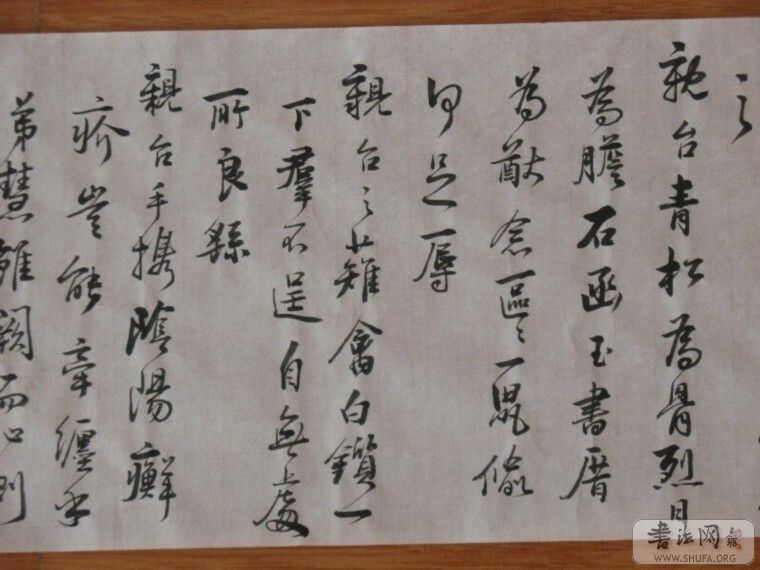 之
親台青松為骨烈日
為膽石函玉書厝
為猷念區々一鼠偷
何足一辱
親台之薤會白鑽一
下群不逞自無處
所良繇
親台手攜陰陽癬
疥豈能牽纏乎
弟慧雖闕而口則
書法网
WWW.SHUFA.ORG